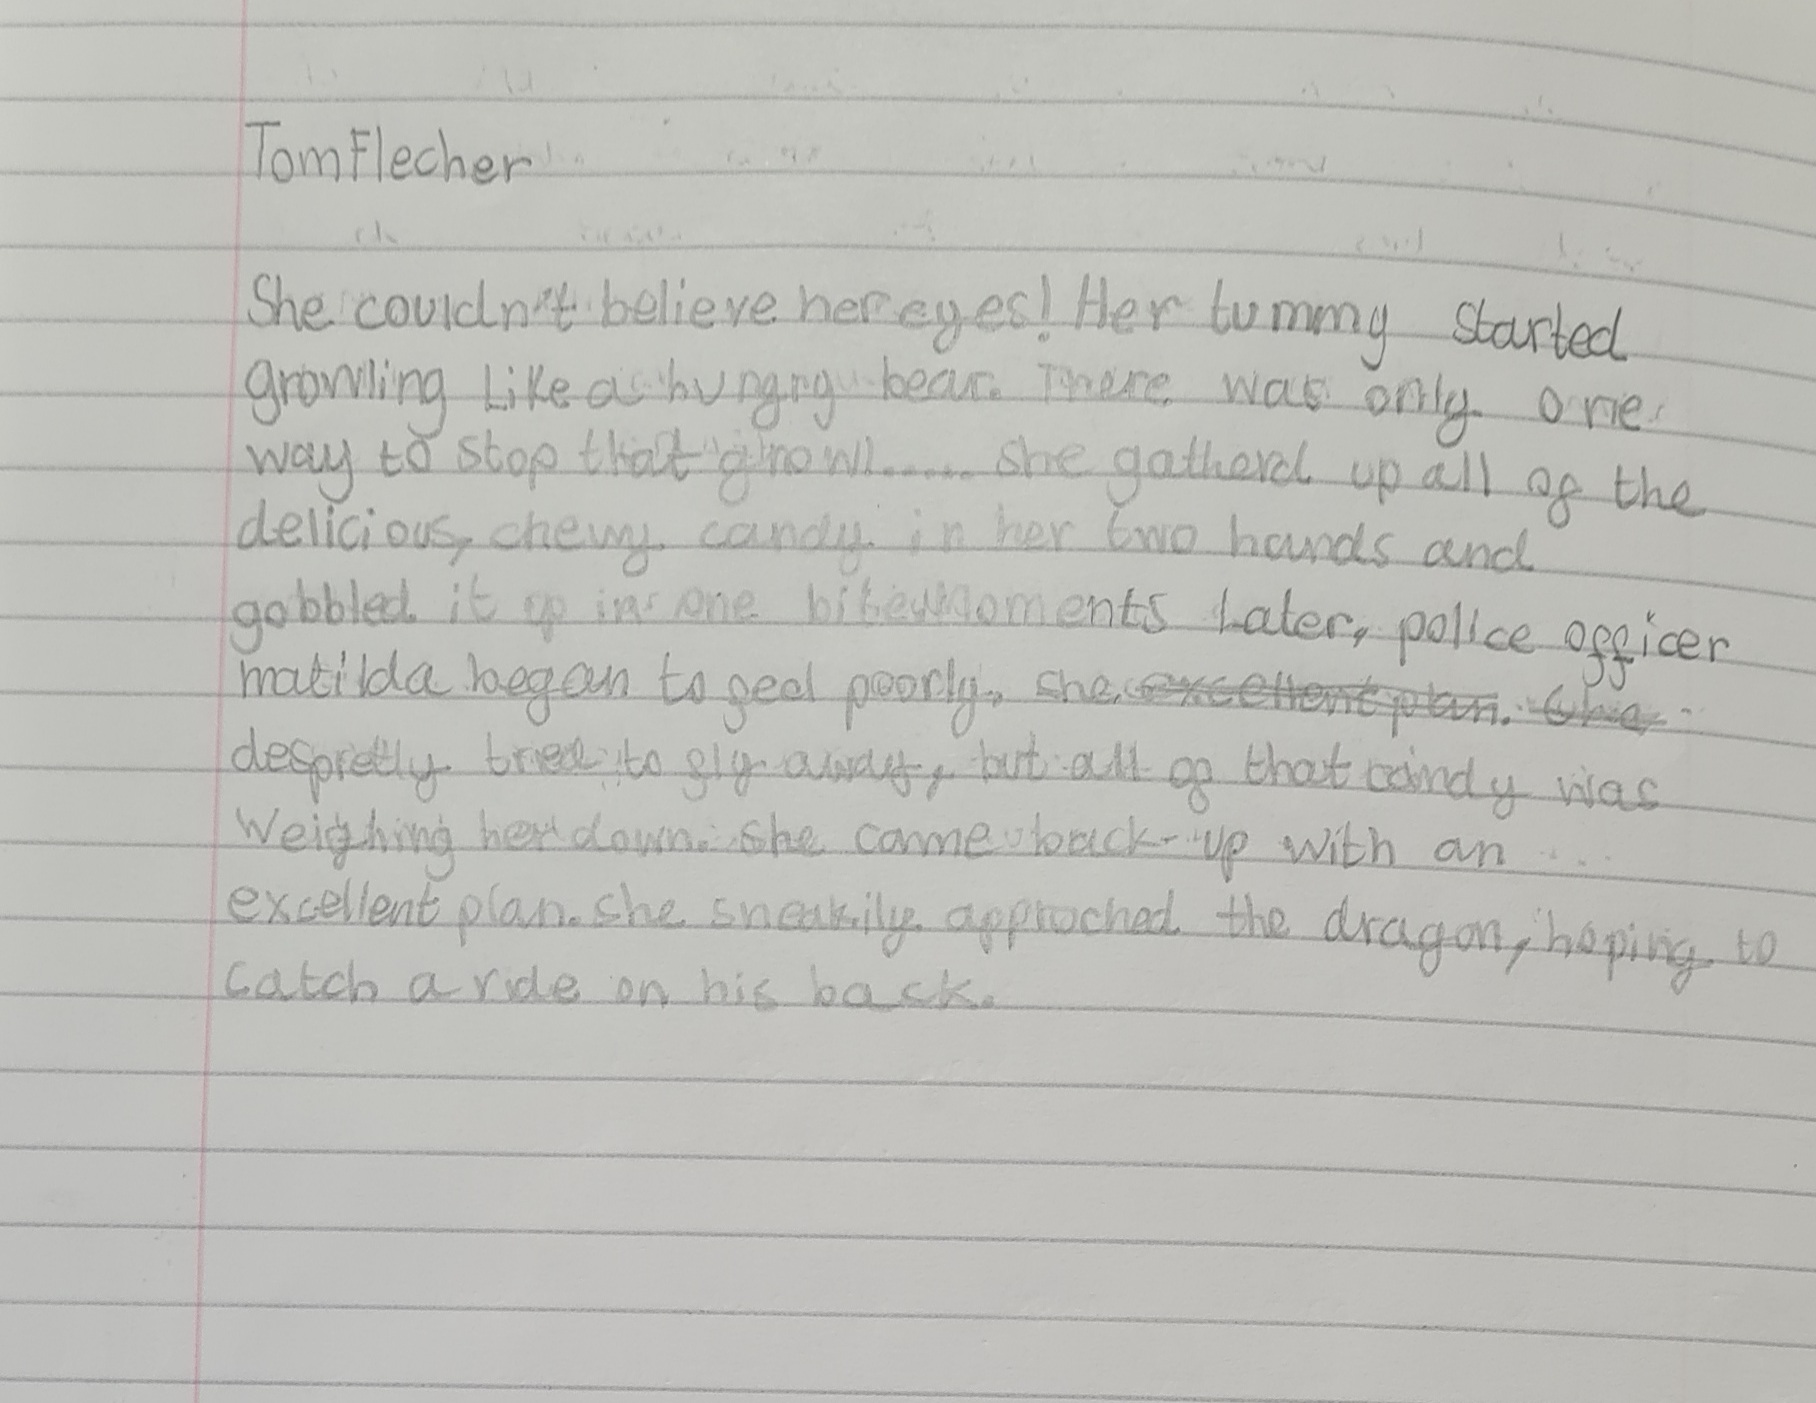 Tom Flecher
She couldn't believe her eyes! Her tummy started
growling Like a hungry bear. There was only one
way to stop that growl..... she gatherd up all of the
delicious, chewy candy in her two hands and
gobbled it up in one bite. moments Later, police officer
matilda began to feel poorly. she excellent plan. She
despretly tried to fly away, but all of that candy was
Weighing her down. She came back up with an
excellent plan. she sneakily approched the dragon, hoping to
catch a ride on his back.